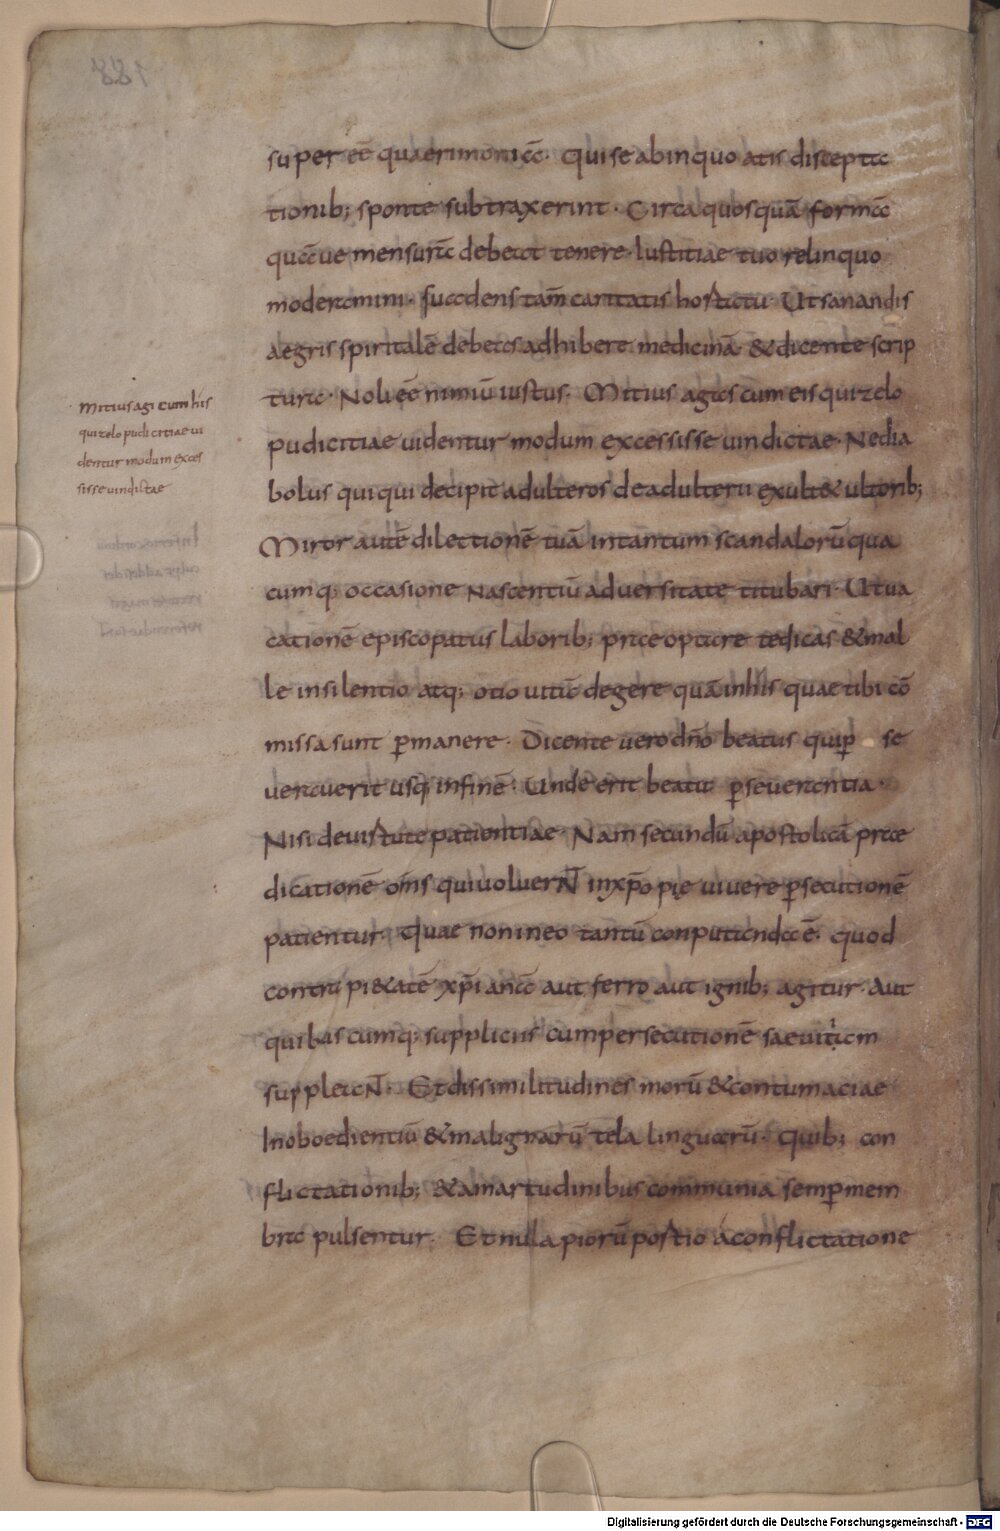 super eē quaerimoniā. qui se ab inquoatis discepta
tionib; sponte subtraxerint. Circa quos quā formā
quā ue mensurā debeat tenere Iustitiae tuo relinquo
moderamini. suadens tam̄ caritatis hortatu. Ut sanandis
aegris spiritalē debeas adhibere medicinā & dicente scrip
tura. Noli eē nimiū iustus. Mitius agas cum eis qui zelo
pudicitiae uidentur modum excessisse uindictae. Ne dia
bolus qui qui decipit adulteros de adulterii exult& ultorib;
Miror autē dilectionē tuā intantum scandalorū qua
cumq; occasione Nascentiū aduersitate titubari. Ut ua
cationē episcopatus laborib; praeoptare te dicas & mal
le in silentio atq; otio uitā degere quā in his quae tibi cō
missa sunt p̄manere. Dicente uero dn̄o beatus qui p̄ se
uerauerit usq; in finē. Unde erit beata p̄seuerantia.
Nisi de uirtute patientiae. Nam secundū apostolicā prae
dicationē om̄s qui uoluerNT̄ in xp̄o pie uiuere p̄secutionē
patientur. Quae non in eo tantū conputanda ē. quod
contra pi&atē xp̄ianā aut ferro aut ignib; agitur. Aut
quibus cumq; suppliciis cum persecutionē saeuitiam
suppleaNT̄. Et dissimilitudines morū & contumaciae
Inoboedientiū & malignarū tela linguarū. Quib; con
flictationib; & amartudinibus communia semp̄ mem
bra pulsentur. Et nulla piorū portio a conflictatione
Mitius agi cum his
qui zelo pudicitiae ui
dentur modum exces
sisse uindictae
Digitalisierung gefördert durch die Deutsche Forschungsgemeinschaft - DFG